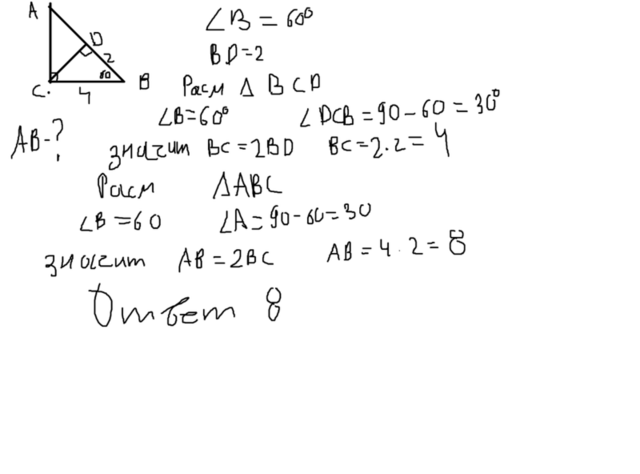 A
∠B = 60°
D
2
BD=2
60
C.
4
B
Расм △ BCD
AB-?
∠B=60°
∠DCB=90-60=30°
значит BC=2BD BC=2·2=4
Расм △ABC
∠B=60 ∠A=90-60=30
значит AB=2BC AB=4·2=8
Ответ 8